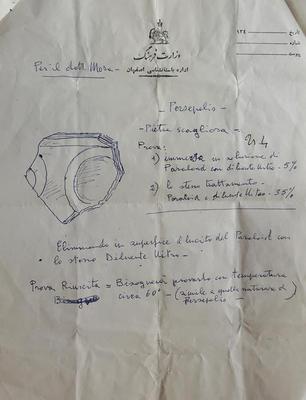 تاریخ
۱۳۴
شماره
وزارت فرهنگ
اداره باستانشناسی اصفهان
Per il dott Mora -
- Persepolis -
- Pietra scagliosa -
Prova:
1) immersa in soluzione di
Paraloid con diluente Nitro - 5%
2) lo stesso trattamento -
Paraloid e diluente Nitro - 35%
Eliminando in superfice il lucido del Paraloid con
lo stesso Diluente Nitro -
Prova Riuscita = Bisognerà provarlo con temperatura
circa 60° - (simile a quella naturale di
Persepolis -